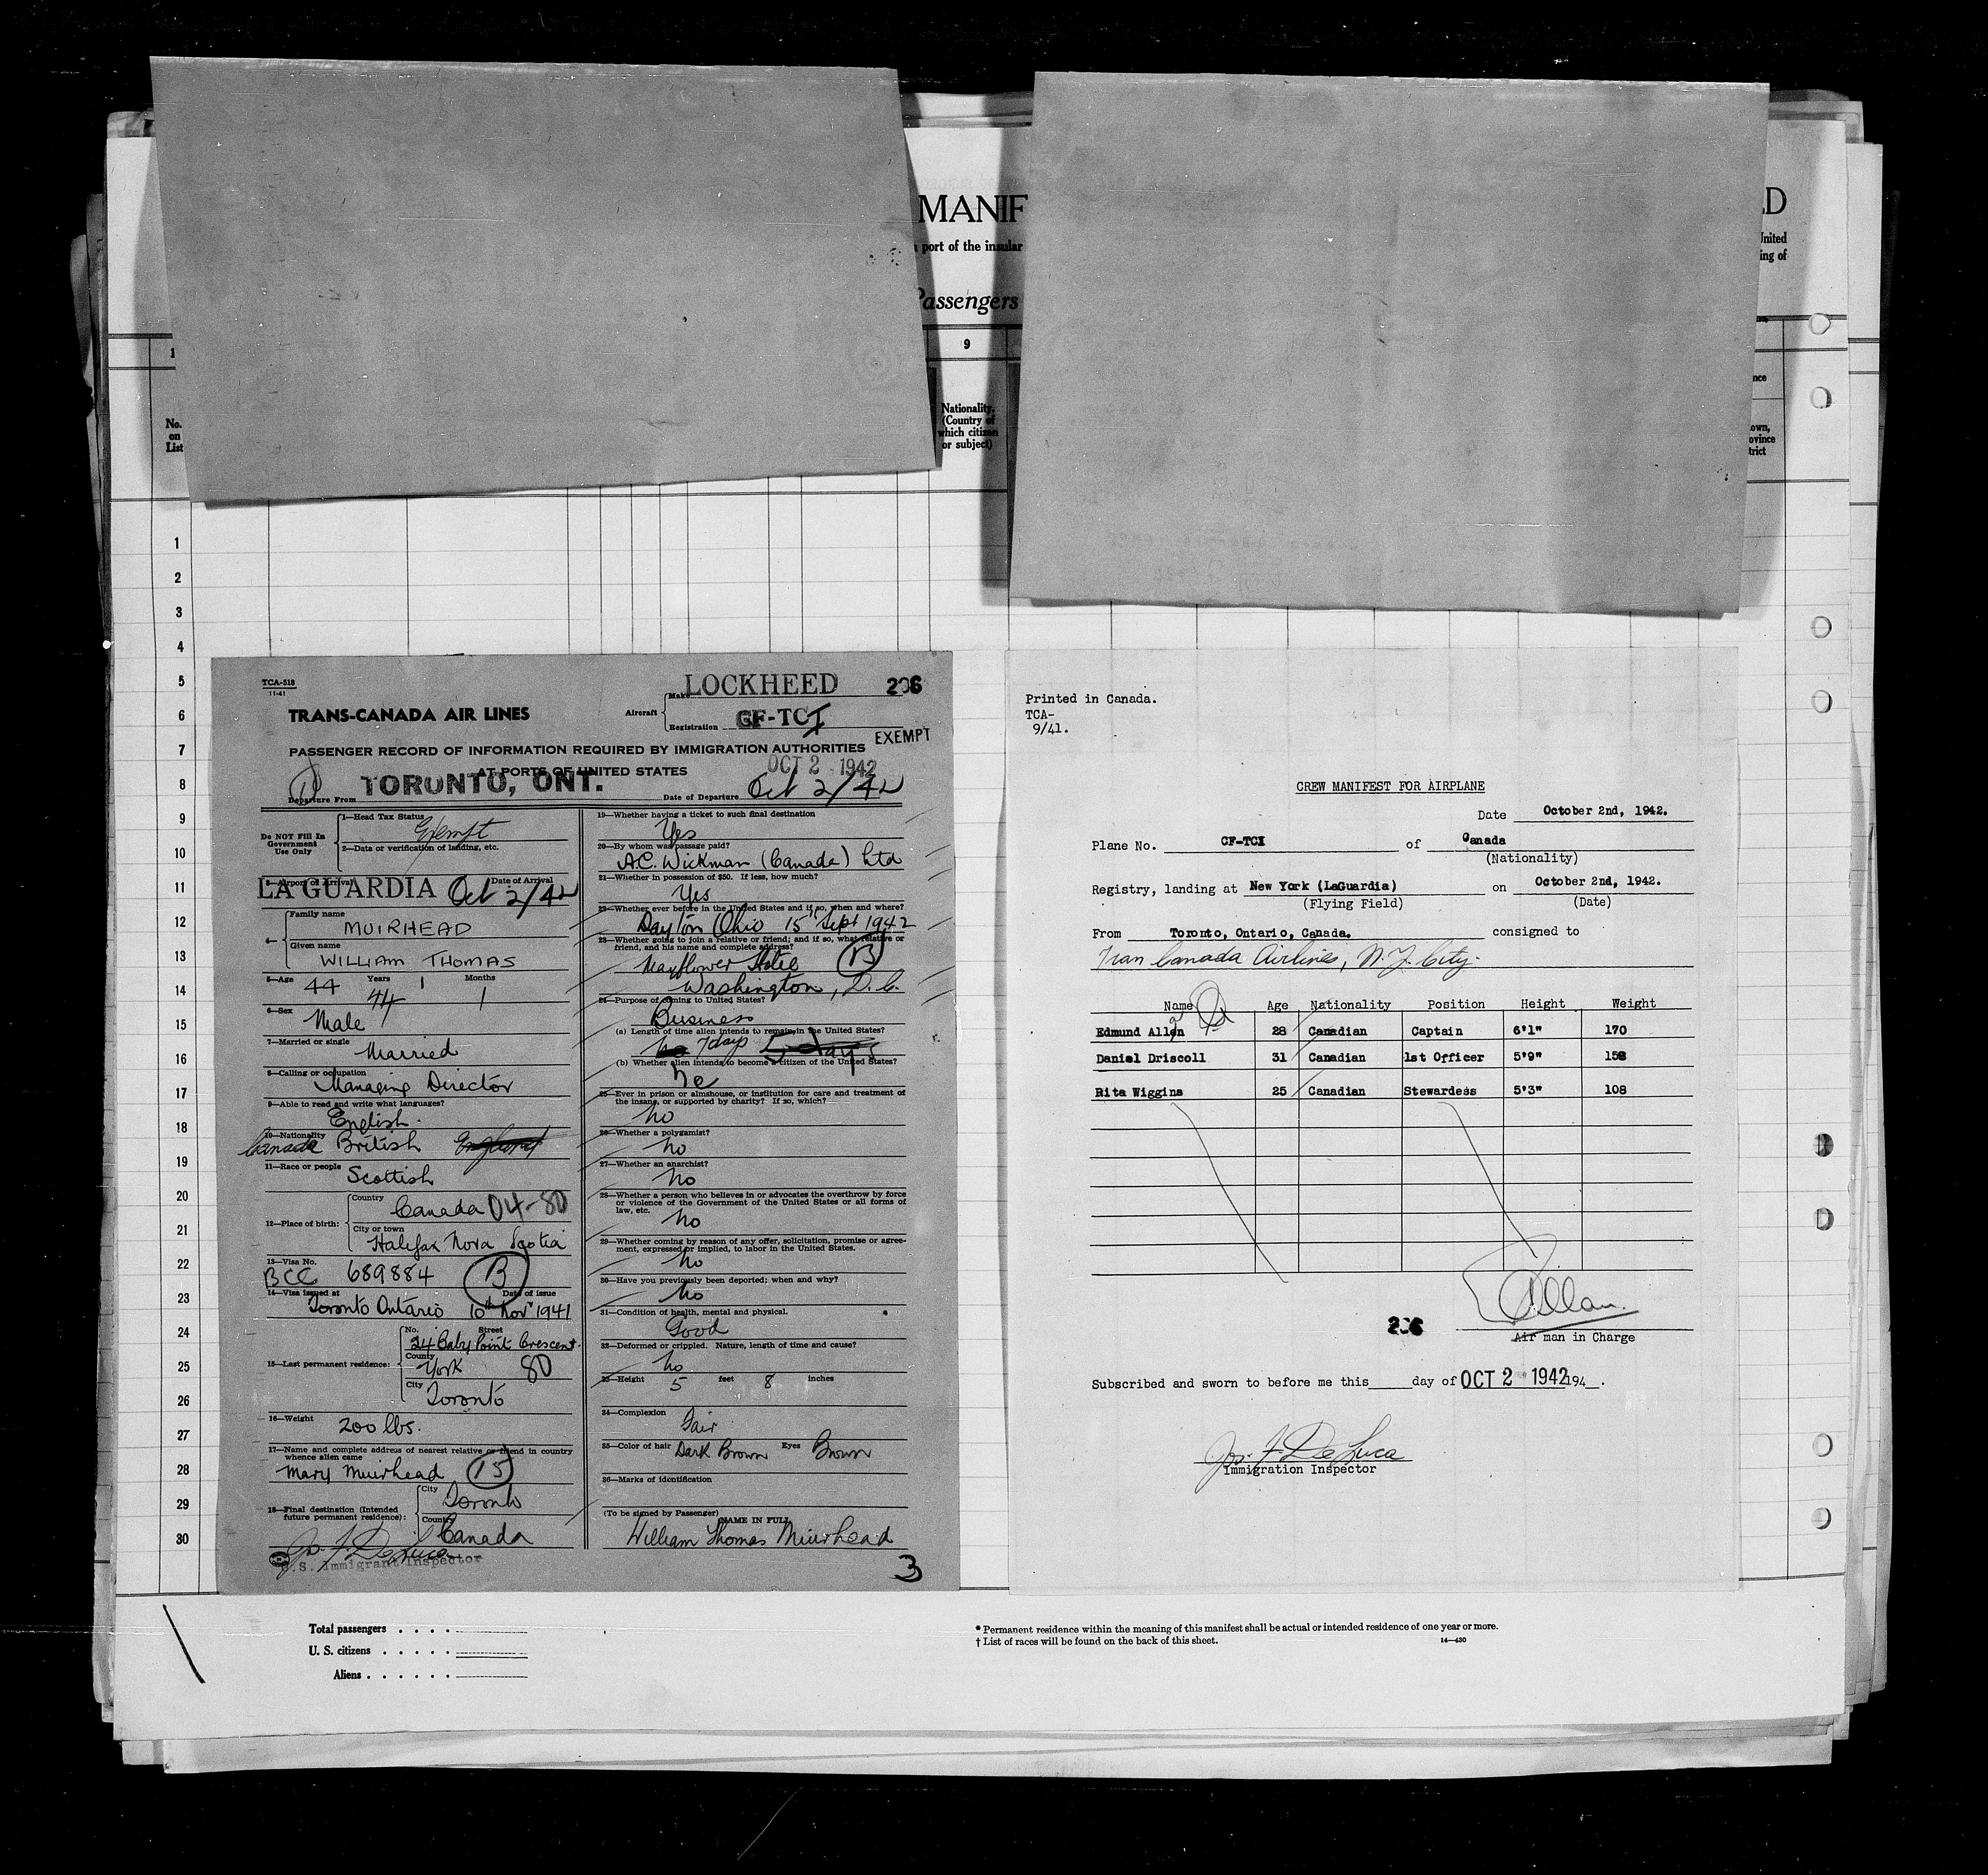 MANIF
LD
port of the insular
United
ing of
Passengers
1
9
nce
No.
on
List
Nationality.
(Country of
which citizen
or subject)
own,
ovince
trict
1
2
3
4
5
6
7
8
9
10
11
12
13
14
15
16
17
18
19
20
21
22
23
24
25
26
27
28
29
30
TCA-518
11-41
LOCKHEED
206
TRANS-CANADA AIR LINES
Aircraft
Make
Registration CF-TCI
EXEMPT
PASSENGER RECORD OF INFORMATION REQUIRED BY IMMIGRATION AUTHORITIES
AT PORTS OF UNITED STATES
OCT 2 1942
Departure From TORONTO, ONT.
Date of Departure Oct 2/42
Do NOT Fill In
Government
Use Only
1—Head Tax Status
Exempt
2—Data or verification of landing, etc.
3—Airport of Arrival
Date of Arrival
LA GUARDIA Oct 2/42
4—
Family name
MUIRHEAD
Given name
WILLIAM THOMAS
5—Age Years Months
44 1
44 1
6—Sex
Male
7—Married or single
Married
8—Calling or occupation
Managing Director
9—Able to read and write what languages?
English.
10—Nationality
Canada British England
11—Race or people
Scottish
12—Place of birth:
Country
Canada 04-80
City or town
Halifax Nova Scotia
13—Visa No.
BCC 689884 B
14—Visa issued at Date of issue
Toronto Ontario 10th Nov 1941
15—Last permanent residence:
No. Street
24 Baby Point Crescent.
County
York 80
City
Toronto
16—Weight
200 lbs.
17—Name and complete address of nearest relative or friend in country
whence alien came
Mary Muirhead 15
18—Final destination (Intended
future permanent residence):
City
Toronto
Country
Canada
Jos. F. De Luca
U.S. Immigrant Inspector
19—Whether having a ticket to such final destination
Yes
20—By whom was passage paid?
A.C. Wickman (Canada) Ltd
21—Whether in possession of $50. If less, how much?
Yes
22—Whether ever before in the United States and if so, when and where?
Dayton Ohio 15th Sept 1942
23—Whether going to join a relative or friend; and if so, what relative or
friend, and his name and complete address?
Mayflower Hotel B
Washington, D.C.
24—Purpose of coming to United States?
Business
(a) Length of time alien intends to remain in the United States?
no 7 days 5 days
(b) Whether alien intends to become a citizen of the United States?
no
25—Ever in prison or almshouse, or institution for care and treatment of
the insane, or supported by charity? If so, which?
no
26—Whether a polygamist?
no
27—Whether an anarchist?
no
28—Whether a person who believes in or advocates the overthrow by force
or violence of the Government of the United States or all forms of
law, etc.
no
29—Whether coming by reason of any offer, solicitation, promise or agree-
ment, expressed or implied, to labor in the United States.
no
30—Have you previously been deported; when and why?
no
31—Condition of health, mental and physical.
Good
32—Deformed or crippled. Nature, length of time and cause?
no
33—Height 5 feet 8 inches
34—Complexion
Fair
35—Color of hair Dark Brown Eyes Brown
36—Marks of identification
(To be signed by Passenger)
NAME IN FULL
William Thomas Muirhead
3
Printed in Canada.
TCA-
9/41.
CREW MANIFEST FOR AIRPLANE
Date October 2nd, 1942.
Plane No. CF-TCI of Canada
(Nationality)
Registry, landing at New York (LaGuardia) on October 2nd, 1942.
(Flying Field) (Date)
From Toronto, Ontario, Canada. consigned to
Tran Canada Airlines, N.Y. City.
Name Age Nationality Position Height Weight
Edmund Allen 28 Canadian Captain 6'1" 170
Daniel Driscoll 31 Canadian 1st Officer 5'9" 158
Rita Wiggins 25 Canadian Stewardess 5'3" 108
206
Air man in Charge
Subscribed and sworn to before me this day of OCT 2 1942 194 .
Jos. F. De Luca
Immigration Inspector
Total passengers . . . .
U. S. citizens . . . . .
Aliens . . . . . .
* Permanent residence within the meaning of this manifest shall be actual or intended residence of one year or more.
† List of races will be found on the back of this sheet.
14—430